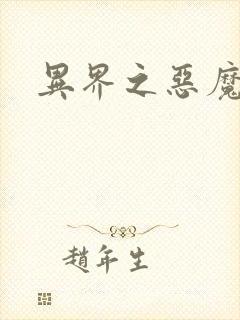 異界之惡魔
趙年生